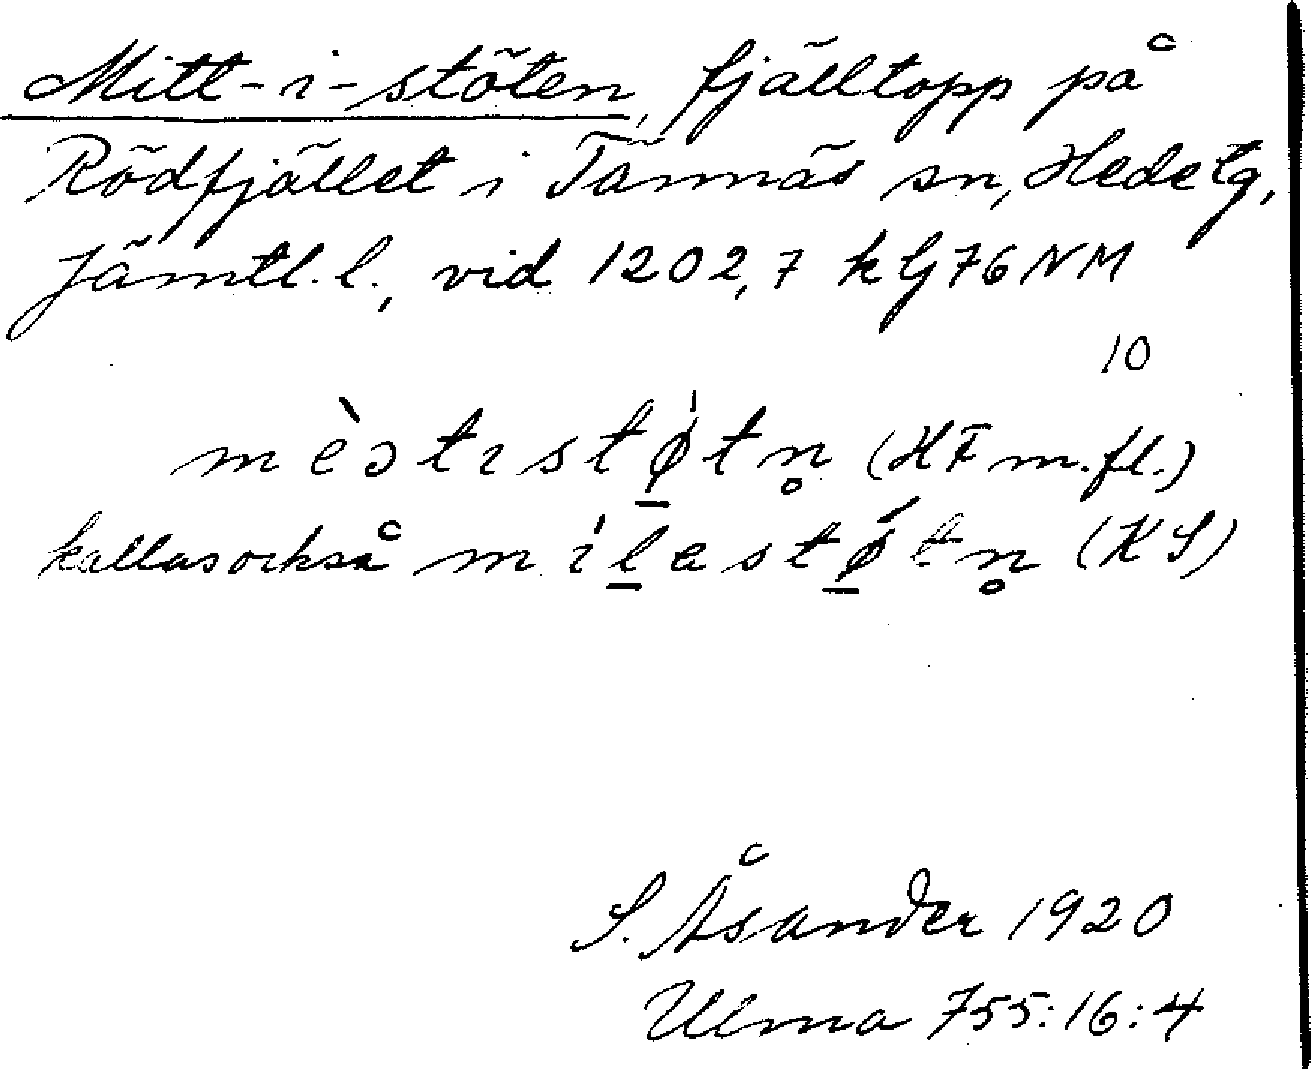 Mitt-i-stöten, fjälltopp på
Rödfjället i Tännäs sn, Hede tg,
Jämtl. l., vid 1202,7 kbl 76 NM
10
mèɔtɪstǿ̠tn̥ (HF m.fl.)
kallas också mil̠estǿ̠tn̥ (KS)
S. Åsander 1920
Ulma 755:16:4